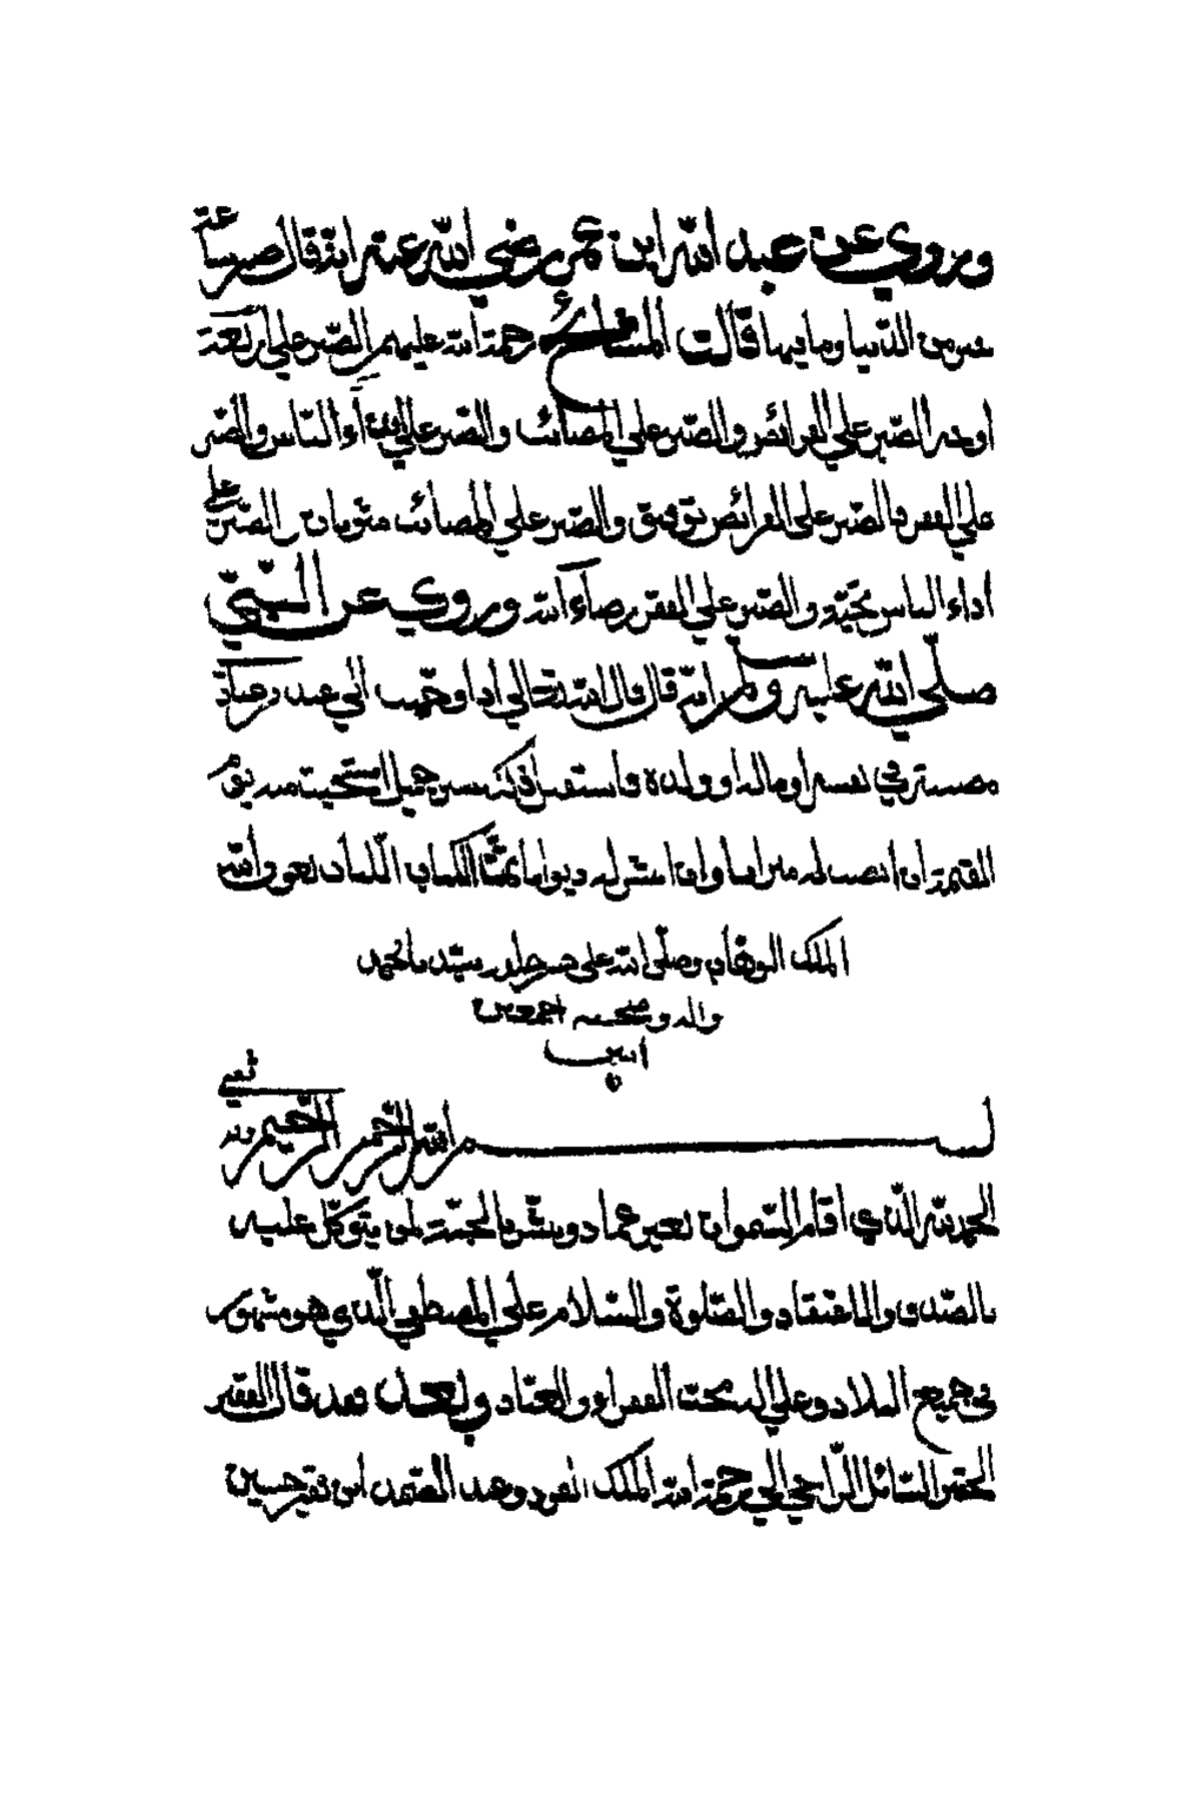 وروي عن عبد الله ابن عمر رضي الله عنه انه قال صبر ساعة
خير من الدنيا وما فيها قالت المشائخ رحمة الله عليهم الصبر على اربعة
اوجه الصبر علي الفرائض والصبر علي المصائب والصبر علي اذاء الناس والصبر
علي الفقر فالصبر على الفرائض توفيق والصبر علي المصائب مثوبات والصبر على
اذاء الناس محبة والصبر علي الفقر رضاء الله وروي عن النبي
صلي الله عليه وسلم انه قال قال الله تعالي اذا وجهت الي عبد من عبادي
مصيبة في نفسه او ماله او ولده فاستقبل ذلك بصبر جميل استحييت منه يوم
القيمة ان انصب له ميزانا وان انشر له ديوانا تمت الكتاب بعون الله
الملك الوهاب وصلى الله على خير خلقه سيدنا محمد
واله وصحبه اجمعين
امين
بسم الله الرحمن الرحيم وبه
نستعين
الحمد لله الذي اقام السموات بغير عماد وبشر بالجنة لمن يتوكل عليه
بالصدق والاعتقاد والصلوة والسلام علي المصطفي الذي هو مشهور
في جميع البلاد وعلي اله محب الفقراء والعباد وبعد فقد قال الفقير
الحقير السائل الراجي الي رحمة الله الملك الفرد عبد الصمد ابن فقير حسين